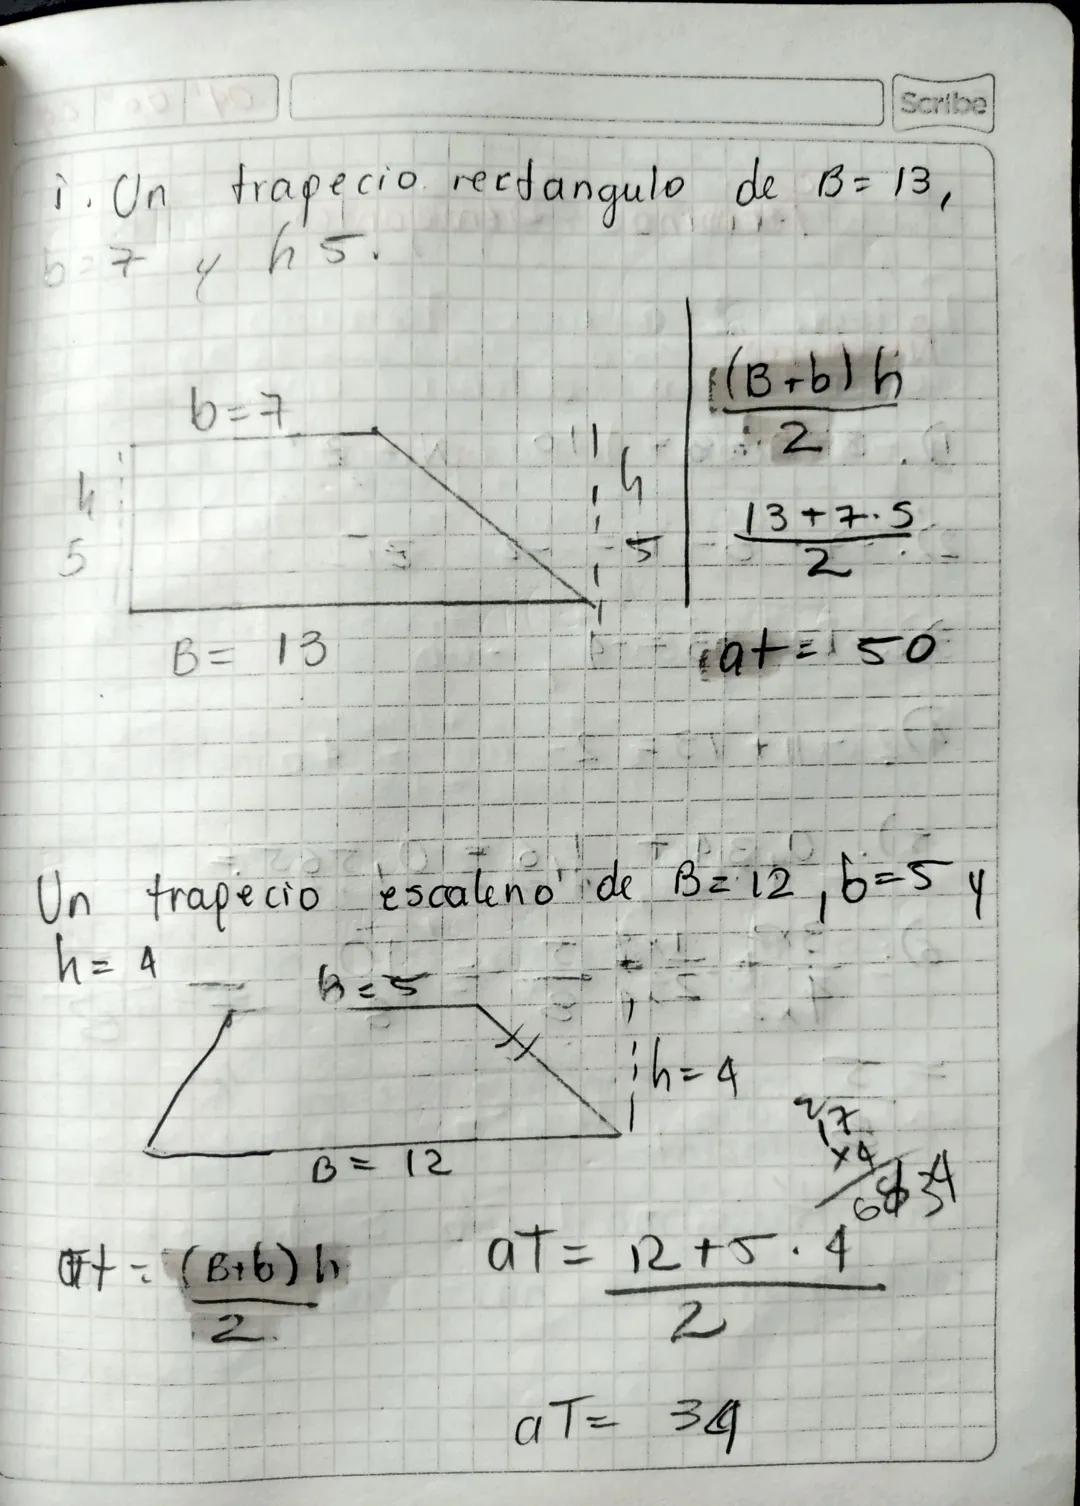 Scribe
i. Un trapecio rectangulo de B=13,
b=7 y h 5.
b=7
h
5
h
5
B= 13
(B+b) h
2
13+7.5
2
at= 50
Un trapecio escaleno de B=12, b=5 y
h= 4
B=5
h=4
B= 12
17
x4
68
34
at = (B+b) h
2
aT= 12+5.4
2
aT= 34